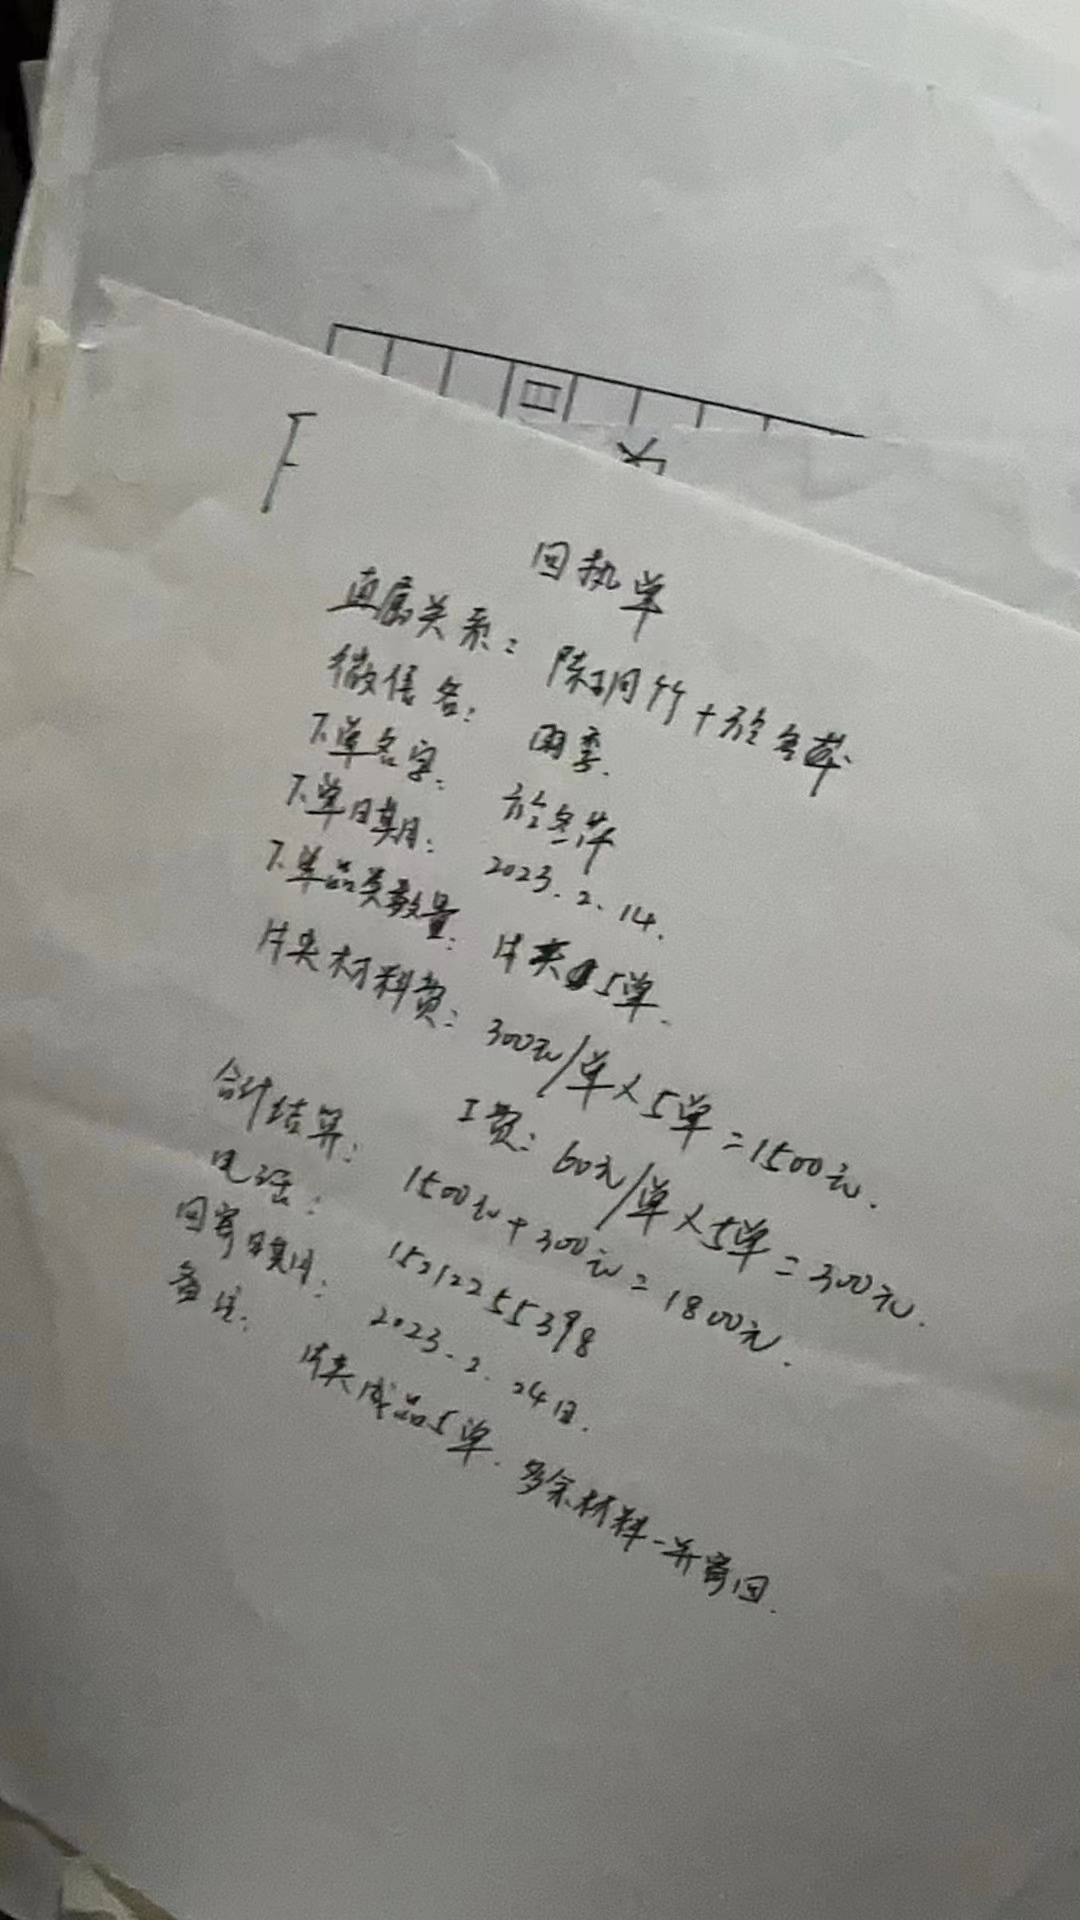 回执单
直属关系：陈翊竹+於冬苹
微信名：雨季.
下单名字：於冬苹
下单日期：2023.2.14.
下单品类数量：片夹5单.
片夹材料费：300元/单×5单=1500元.
工费：60元/单×5单=300元.
合计结算：1500元+300元=1800元.
电话：15212255398
回寄日期：2023.2.24日.
备注：片夹成品5单.多余材料一并寄回.